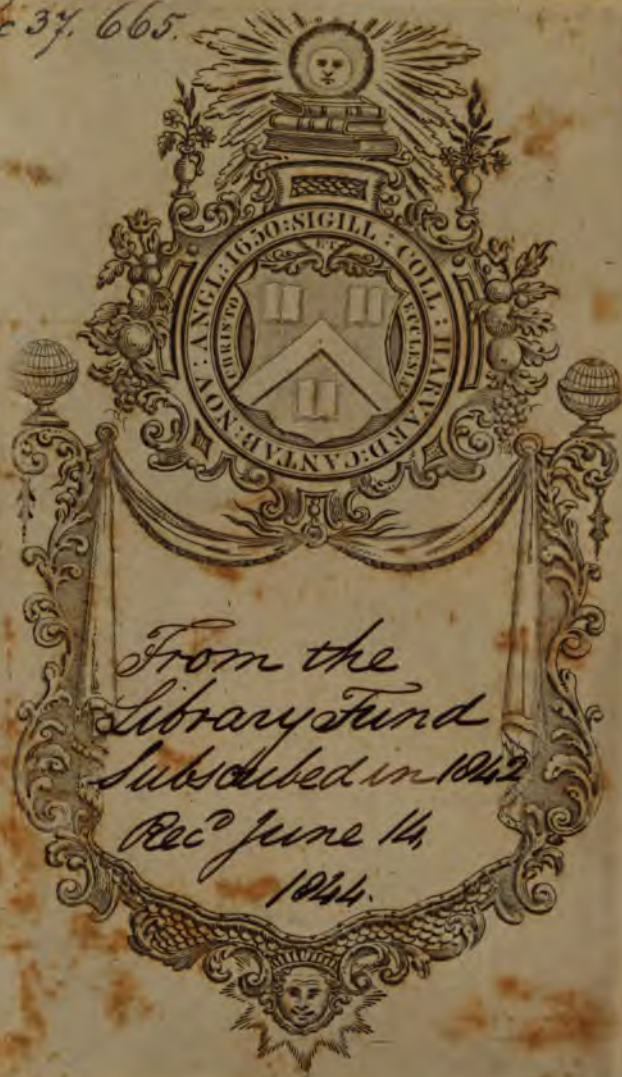 c 37. 665.
SIGILL : COLL : HARVARD : CANTAB : NOV : ANGL : 1650 :
CHRISTO ET ECCLESIÆ
From the
Library Fund
Subscribed in 1842
Rec^d June 14,
1844.